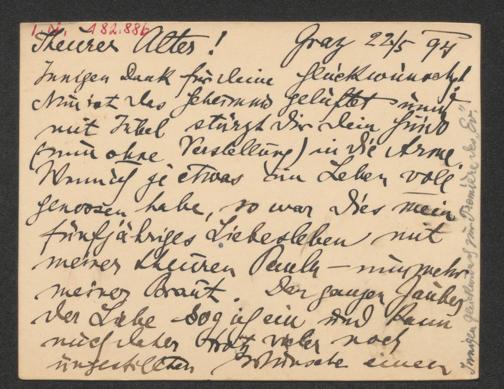 I. N. 182.886
Theurer Alter! Graz 22/5 94
Innigen Dank für deine Glückwünsche!
Nun ist das Geheimniß gelüftet und
mit Jubel stürzt Dir Dein
(nun ohne Verstellung) in die Arme.
Wenn ich je etwas im Leben voll
genossen habe, so war dies mein
fünfjähriges Liebesleben mit
meiner theuren Paula – nunmehr
meiner Braut. Den ganzen Zauber
der Liebe sog ich ein und kann
mich daher trotz vieler noch
ungestillten Wünsche einen
Innigen Glückwunsch zur Première des